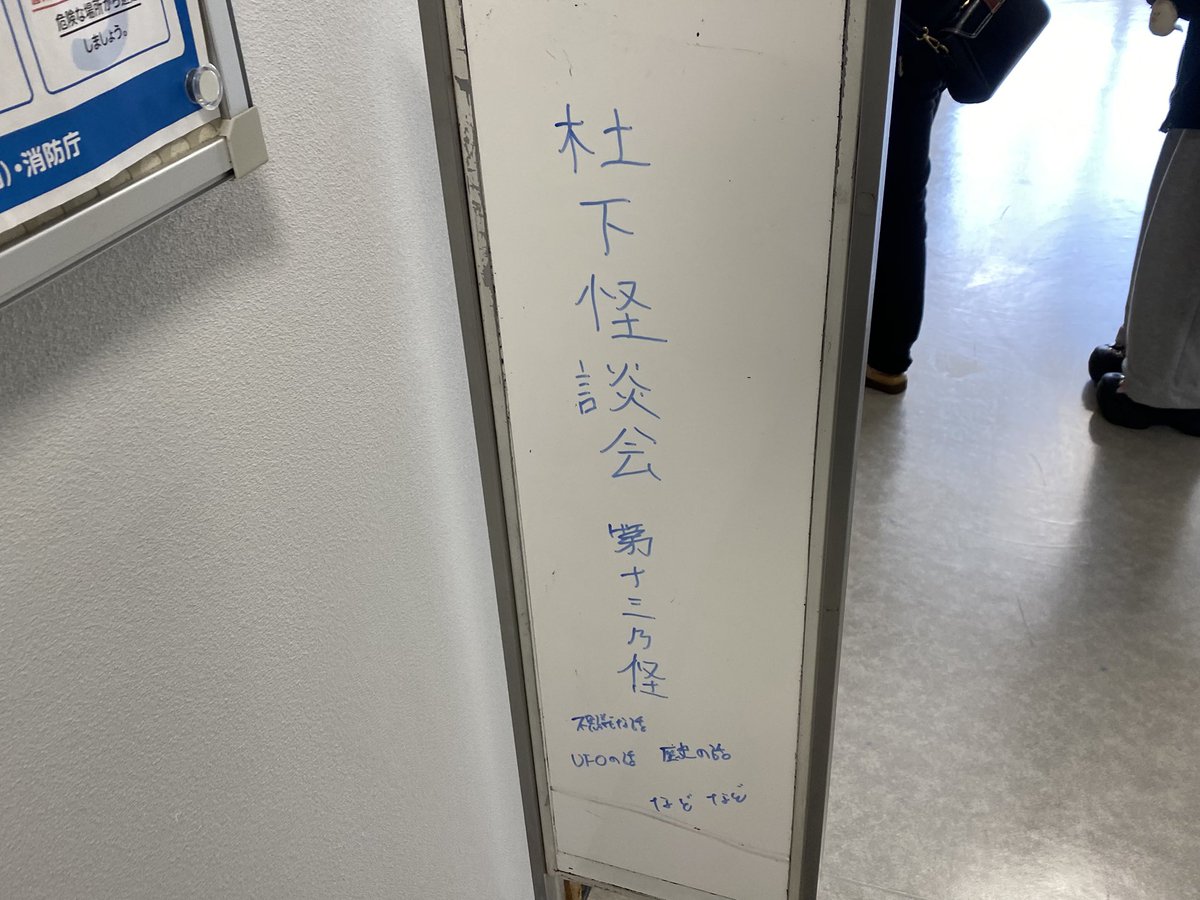 危険な場所から
しましょう。
・消防庁
杜下怪談会 第十三乃怪
不思議な話
UFOの話 歴史の話
などなど